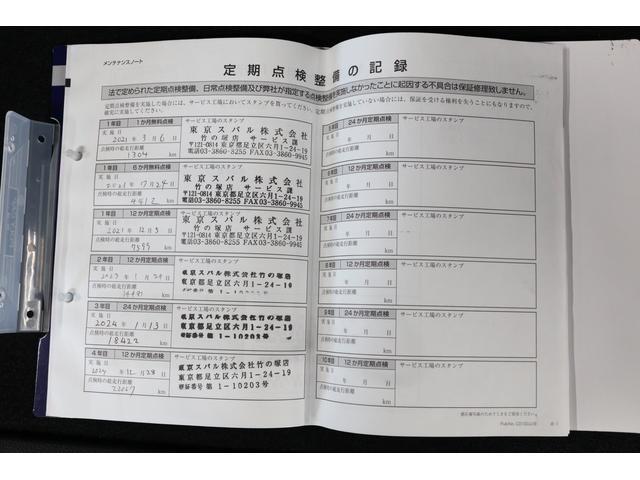 メンテナンスノート
定期点検整備の記録
法で定められた定期点検整備、日常点検整備及び弊社が指定する点検整備を実施しなかったことに起因する不具合は保証修理致しません。
定期点検整備を実施した場合には、サービス工場においてスタンプを買ってください。定期点検整備を実施していない場合には、保証を受ける権利を失うこともになりますので、
確実に実施してください。
1年目 1か月無料点検 サービス工場のスタンプ
実施日 東京スバル株式会社
2021年3月6日 竹の塚店 サービス課
点検時の総走行距離 〒121-0814 東京都足立区六月1-24-19
1304 km 電話03-3860-8255 FAX03-3860-9945
1年目 6か月無料点検 サービス工場のスタンプ
実施日 東京スバル株式会社
2021年7月24日 竹の塚店 サービス課
点検時の総走行距離 〒121-0814 東京都足立区六月1-24-19
4412 km 電話03-3860-8255 FAX03-3860-9945
1年目 12か月定期点検 サービス工場のスタンプ
実施日 東京スバル株式会社
2021年12月3日 竹の塚店 サービス課
点検時の総走行距離 〒121-0814 東京都足立区六月1-24-19
7595 km 電話03-3860-8255 FAX03-3860-9945
2年目 12か月定期点検 サービス工場のスタンプ
実施日 東京スバル株式会社竹の塚店
2023年1月29日 東京都足立区六月1-24-19
点検時の総走行距離
km
3年目 24か月定期点検 サービス工場のスタンプ
実施日 東京スバル株式会社竹の塚店
2024年1月13日 東京都足立区六月1-24-19
点検時の総走行距離 第1-10203号
18422 km
4年目 12か月定期点検 サービス工場のスタンプ
実施日 東京スバル株式会社竹の塚店
2024年12月28日 東京都足立区六月1-24-19
点検時の総走行距離 認証番号 第1-10203号
22027 km
5年目 24か月定期点検 サービス工場のスタンプ
実施日
年 月 日
点検時の総走行距離
km
6年目 12か月定期点検 サービス工場のスタンプ
実施日
年 月 日
点検時の総走行距離
km
7年目 24か月定期点検 サービス工場のスタンプ
実施日
年 月 日
点検時の総走行距離
km
8年目 12か月定期点検 サービス工場のスタンプ
実施日
年 月 日
点検時の総走行距離
km
9年目 24か月定期点検 サービス工場のスタンプ
実施日
年 月 日
点検時の総走行距離
km
10年目 12か月定期点検 サービス工場のスタンプ
実施日
年 月 日
点検時の総走行距離
km